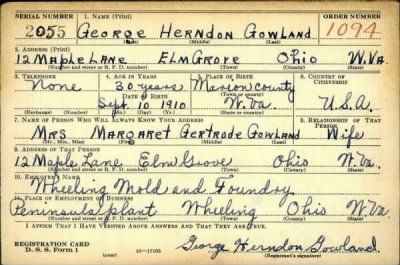 SERIAL NUMBER 1. NAME (Print) ORDER NUMBER
2055 George Herndon Gowland 1094
(First) (Middle) (Last)
2. ADDRESS (Print)
12 Maple Lane Elm Grove Ohio W.Va.
(Number and street or R. F. D. number) (Town) (County) (State)
3. TELEPHONE 4. AGE IN YEARS 5. PLACE OF BIRTH 6. COUNTRY OF CITIZENSHIP
None 30 years Marion County
DATE OF BIRTH
Sept. 10 1910 W.Va. U.S.A.
(Exchange) (Number) (Mo.) (Day) (Yr.) (State or country)
7. NAME OF PERSON WHO WILL ALWAYS KNOW YOUR ADDRESS 8. RELATIONSHIP OF THAT PERSON
Mrs Margaret Gertrude Gowland Wife
(Mr., Mrs., Miss) (First) (Middle) (Last)
9. ADDRESS OF THAT PERSON
12 Maple Lane Elm Grove Ohio W.Va.
(Number and street or R. F. D. number) (Town) (County) (State)
10. EMPLOYER'S NAME
Wheeling Mold and Foundry
11. PLACE OF EMPLOYMENT OR BUSINESS
Peninsula plant Wheeling Ohio W.Va.
(Number and street or R. F. D. number) (Town) (County) (State)
I AFFIRM THAT I HAVE VERIFIED ABOVE ANSWERS AND THAT THEY ARE TRUE.
REGISTRATION CARD
D. S. S. Form 1 16—17105 George Herndon Gowland
(Registrant's signature)